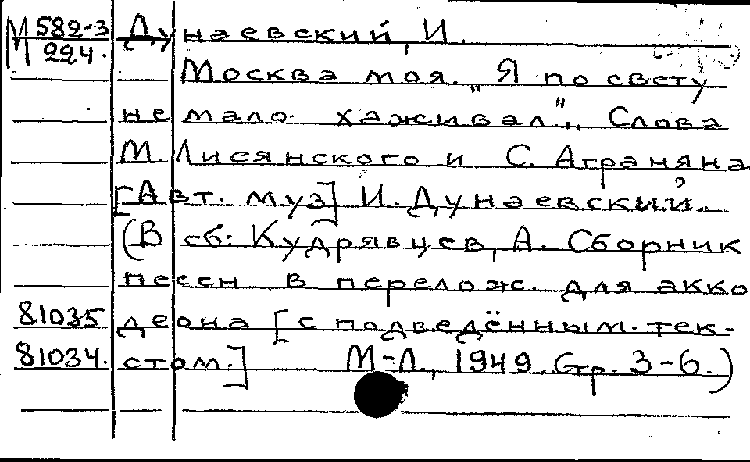 М 582-3 Дунаевский, И.
224.
Москва моя. "Я по свету
не мало хаживал"., Слова
М. Лисянского и С. Аграняна
[Авт. муз] И. Дунаевский.
(В сб: Кудрявцев, А. Сборник
песен в перелож. для акко
81035 деона [с подведённым. тек-
81034. стом.] М-Л., 1949. Стр. 3-6.)